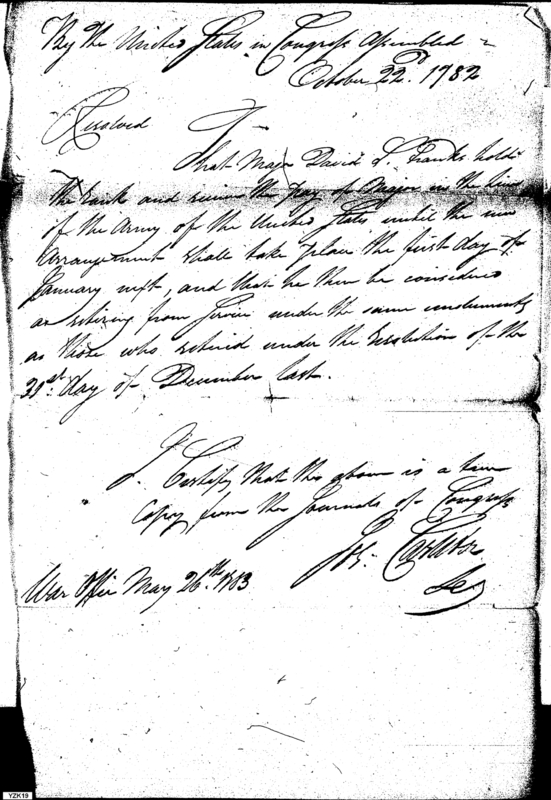 By the United States in Congress Assembled
October 22d. 1782
Resolved
That Majr David S. Franks hold
the rank and receive the pay of Major in the Line
of the Army of the United States, until the new
Arrangement shall take place the first day of
January next, and that he then be considered
as retiring from Service under the same emoluments
as those who retired under the Resolution of the
31st. day of December last.
I Certify that the above is a true
Copy from the Journals of Congress
Jos: Carleton
Secy
War Office May 26th. 1783
YZK19